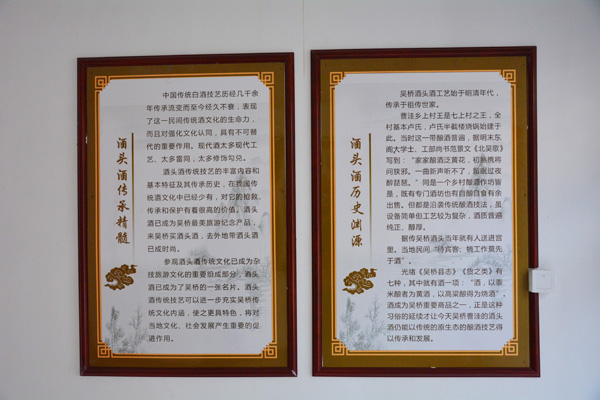 酒头酒传承精髓
中国传统白酒技艺历经几千余
年传承流变而至今经久不衰，表现
了这一民间传统酒文化的生命力，
而且对强化文化认同，具有不可替
代的重要作用。现代酒太多现代工
艺、太多雷同，太多修饰勾兑。
酒头酒传统技艺的丰富内容和
基本特征及其传承历史，在我国传
统酒文化中已经少有，对它的抢救、
传承和保护有着很高的价值。酒头
酒已成为吴桥最美旅游纪念产品，
来吴桥买酒头酒，去外地带酒头酒
已成时尚。
参观酒头酒传统文化已成为杂
技旅游文化的重要组成部分，酒头
酒已成为了吴桥的一张名片。酒头
酒传统技艺可以进一步充实吴桥传
统文化内涵，使之更具特色，将对
当地文化、社会发展产生重要的促
进作用。
酒头酒历史渊源
吴桥酒头酒工艺始于明清年代，
传承于祖传世家。
曹洼乡上村王是七上村之王，全
村基本卢氏，卢氏半截楼烧锅始建于
此。当时这一带酿酒普遍，据明末东
阁大学士、工部尚书范景文《北吴歌》
写到：“家家酿酒泛黄花，初熟携将
问获邪。一曲新声听不了，
醉琵琶。”同是一个乡村酿酒作坊皆
是，既有专门酒坊也有自酿自食有余
出售。但都是沿袭传统酿酒技法，虽
设备简单但工艺较为复杂，酒质普遍
纯正、醇厚。
据传吴桥酒头当年就有人送进宫
里。当地民间“待宾客、犒工作莫先
于酒”。
光绪《吴桥县志》《货之类》有
七种，其中就有酒一项：“酒，以黍
米酿者为黄酒，以高粱酿得为烧酒”。
酒成为吴桥重要商品之一，正是这种
习俗的延续才让今天吴桥曹洼的酒头
酒仍能以传统的原生态的酿酒技艺得
以传承和发展。